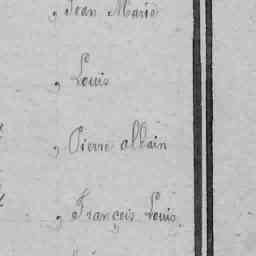 , Jean Marie
, Louis
, Pierre allain
, François Louis